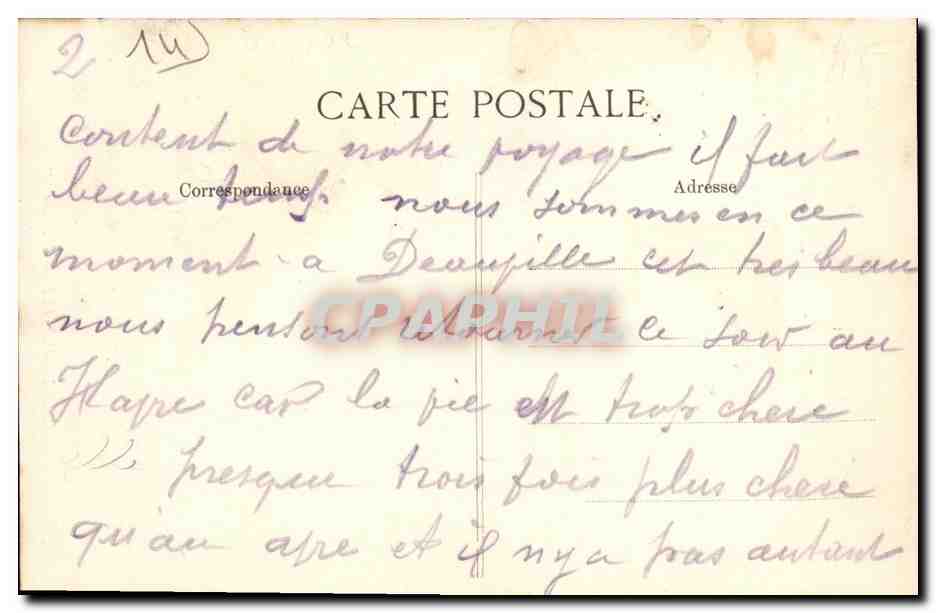 2 14
CARTE POSTALE
content de notre voyage il fait
Correspondance
Adresse
beau temps nous sommes en ce
moment a Deauville cet tres beau
CPAPHIL
nous pensons retourner ce soir au
Havre car la vie est trop chere
presque trois fois plus chere
qu'au avre et il n'y a pas autant